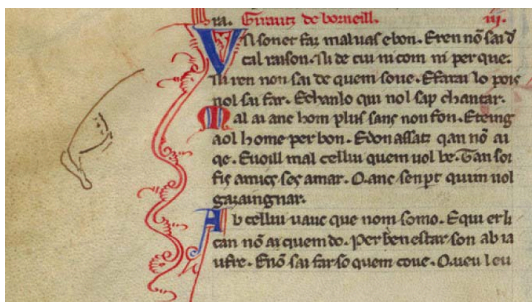 ra. Giraut de borneill. iij.
Vn sonet faz maluas e bon. E ren nō sai d'
cal raison. Ni de cui ni com ni per que.
Ni ren non sai de quem soue. E farai lo pois
nol sai far. E chan lo qui nol sap chantar.
Mal ai anc hom plus sans non fon. E teing
aol home per bon. E don assatz qan nō ai
qe. E uoill mal celliu quem uol be. Tan son
fis amics ses amar. Q anc sen pt quim uol
gaiaingnar.
Ab celliu uauc que nom somo. E qui er li
can nō ai quem do. Per ben estar son ab ia
ufre. E nō sai far so quem coue. Q ueu leu